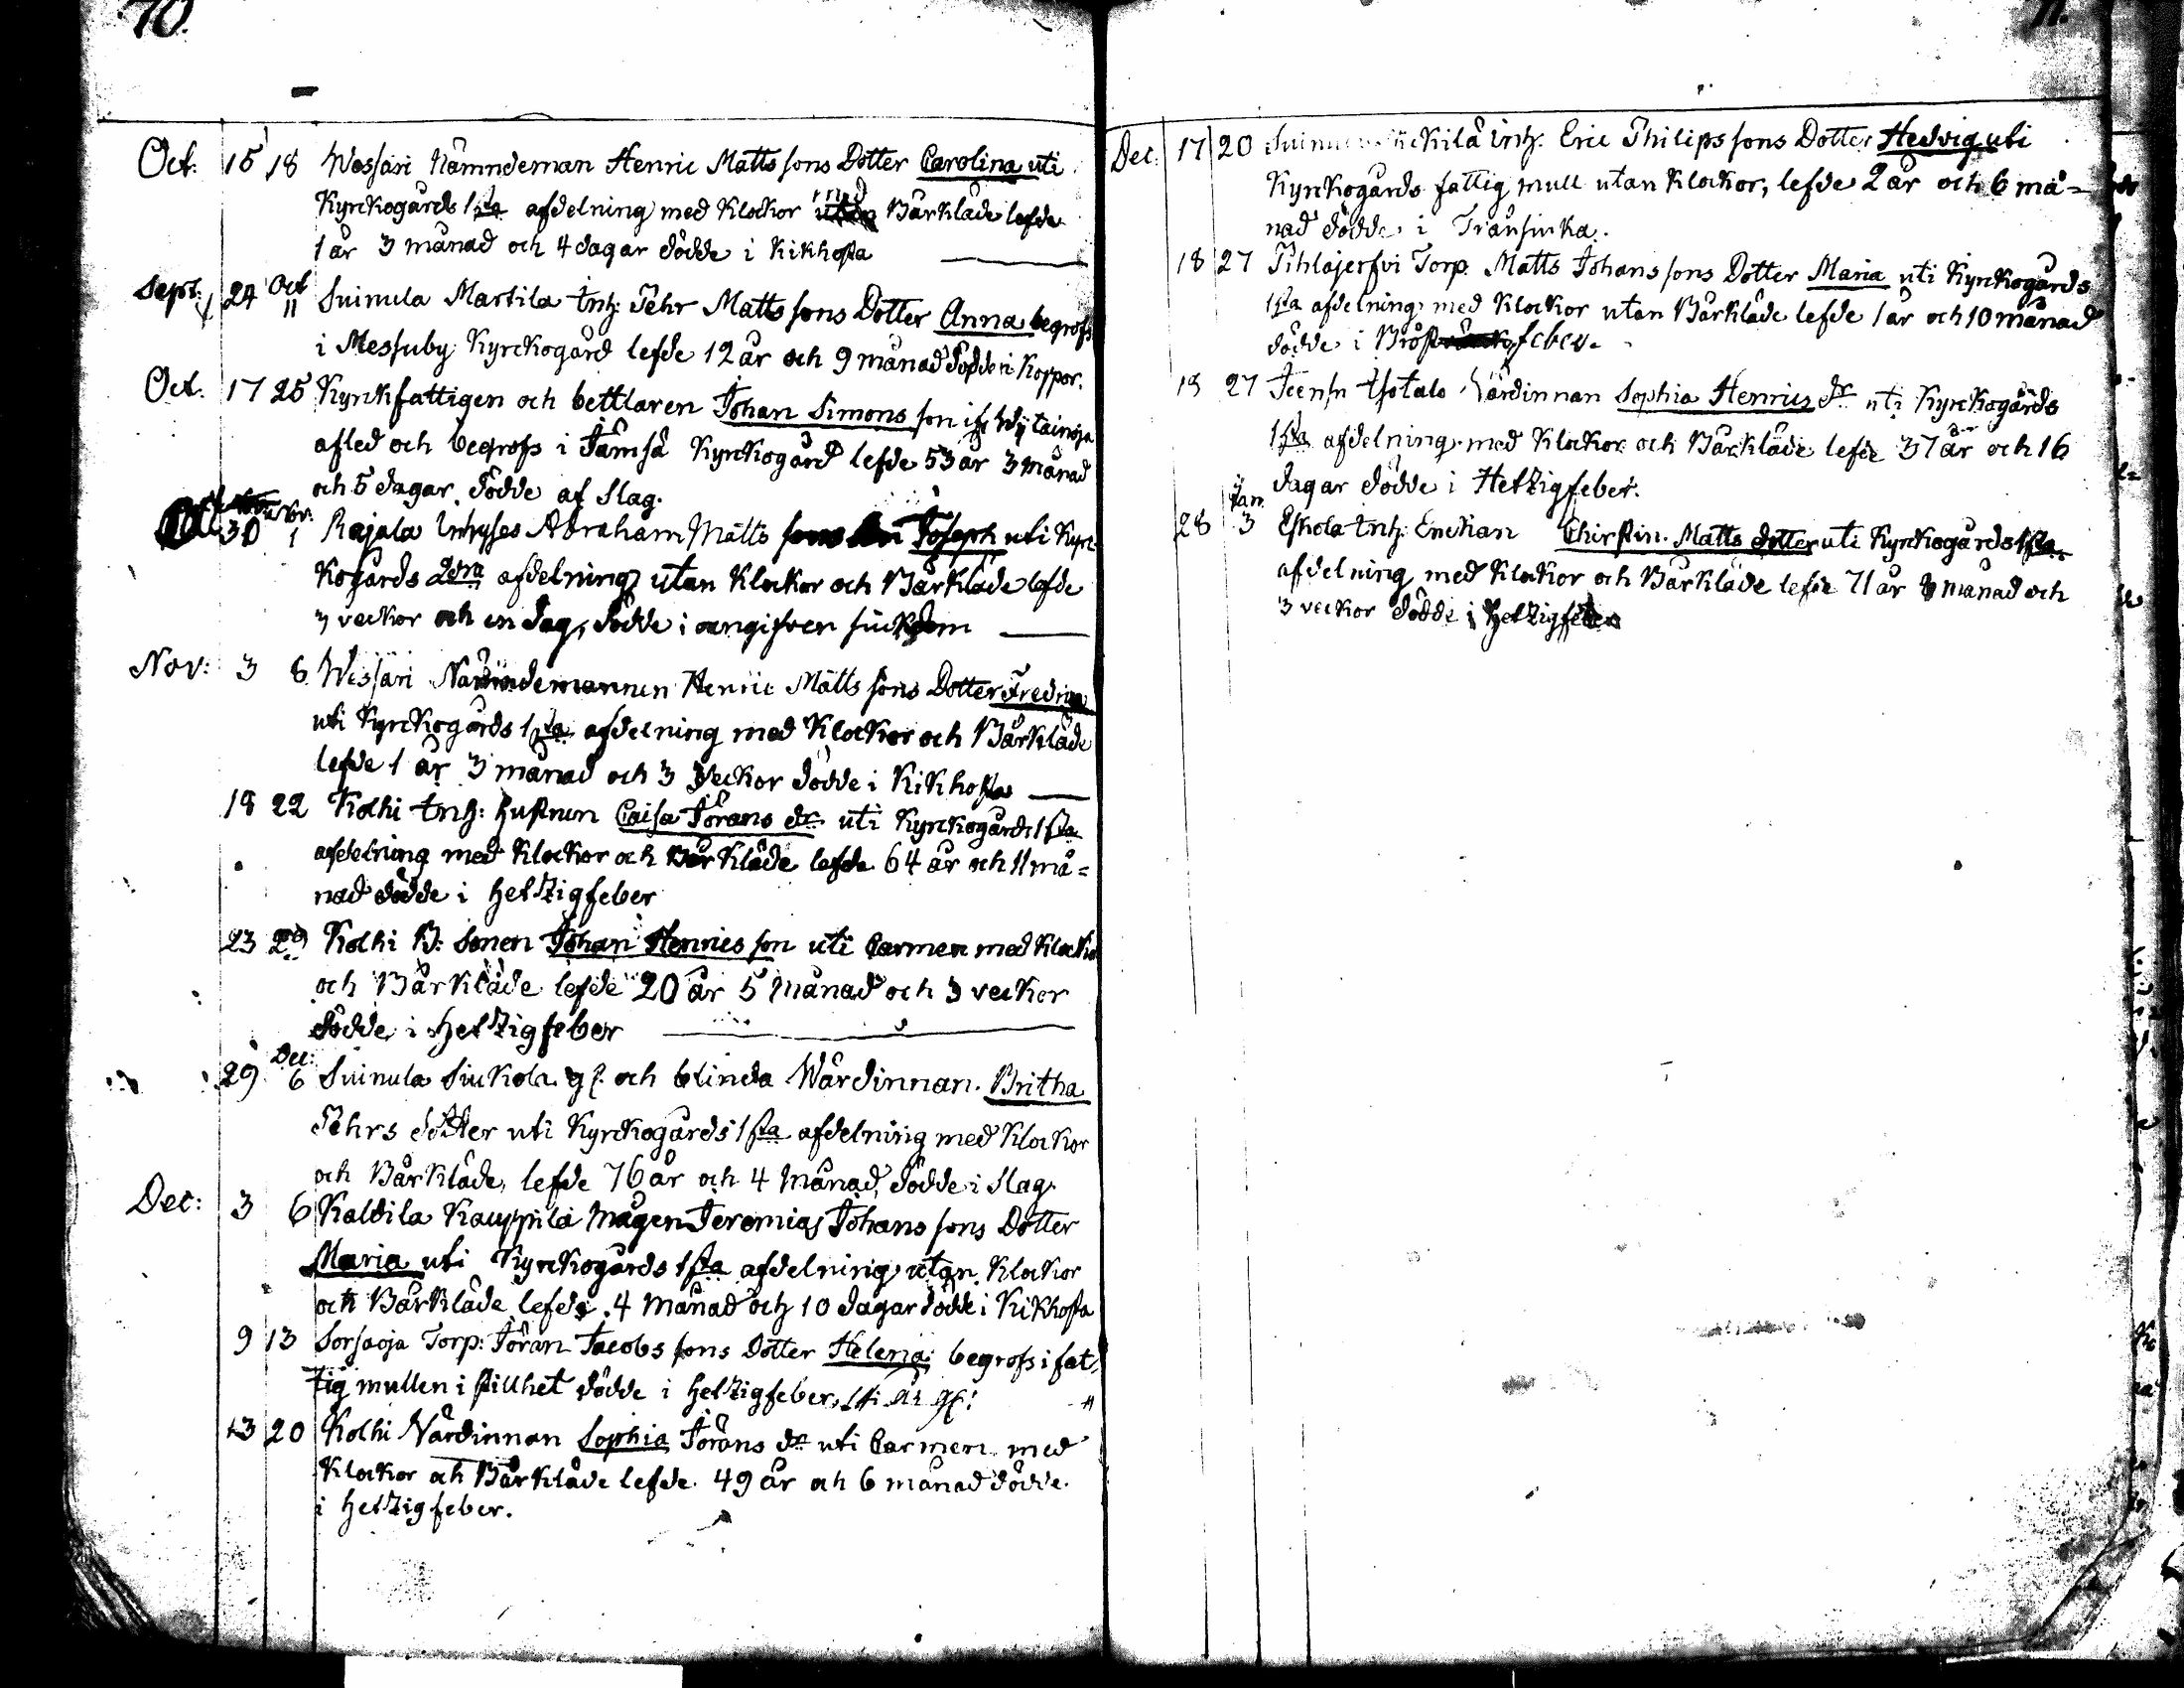 70.
Oct: 15 18 Wessari Nämndeman Henric Matts sons Dotter Carolina uti
Kyrckogårds 1sta afdelning med Klockor med Bårkläde lefde
1 år 3 månad och 4 dagar dödde i Kikhosta
Sept: 24 Oct 11 Suinula Martila Inh: Pehr Matts sons Dotter Anna begrofs
i Messuby Kyrckogård lefde 12 år och 9 månad dödde i Koppor.
Oct. 17 25 Kyrckfattigen och bettlaren Johan Simons son
afled och begrofs i Jämsä Kyrckogård lefde 53 år 3 månad
och 5 dagar dödde af Slag.
30 Nov: 1 Rajala Inhyses Abraham Matts sons Son Joseph uti Kyrc-
kogårds 2dra afdelning utan Klockor och Bårkläde lefde
3 veckor och en dag, dödde i oangifven siuckdom
Nov: 3 8 Wessari Nämndemannen Henric Matts sons Dotter Fredrica
uti Kyrckogårds 1sta afdelning med Klockor och Bårkläde
lefde 1 år 3 månad och 3 Veckor dödde i Kikhosta
18 22 Kolhi Inh: hustrun Caisa Jörans dr uti Kyrckogårds 1sta
afdelning med Klockor och Bårkläde lefde 64 år och 11 må=
nad dödde i Hetzigfeber
23 29 Kolhi B: Sonen Johan Henrics son uti Carmen med Klockor
och Bårkläde lefde 20 år 5 månad och 3 veckor
dödde i Hetzigfeber
29 Dec: 6 Suinula Siukola gl. och blinda Wärdinnan Britha
Pehrs dotter uti Kyrckogårds 1sta afdelning med Klockor
och Bårkläde, lefde 76 år och 4 månad, dödde i Slag
Dec: 3 6 Kaldila Kauppila mågen Jeremias Johans sons Dotter
Maria uti Kyrckogårds 1sta afdelning utan Klockor
och Bårkläde lefde 4 månad och 10 dagar dödde i Kikhosta
9 13 Sorsaoja Torp: Jöran Jacobs sons Dotter Helena begrofs i fat-
tig mullen i stillhet dödde i Hetzigfeber,
13 20 Kolhi Värdinnan Sophia Jörans dr uti Carmen med
Klockor och Bårkläde lefde 49 år och 6 månad dödde
i Hetzigfeber.
11.
Dec: 17 20 Inh: Eric Philips sons Dotter Hedvig uti
Kyrckogårds fattig mull utan Klockor, lefde 2 år och 6 må=
nad dödde i Trånsiuka.
18 27 Pihlajerfvi Torp: Matts Johans sons Dotter Maria uti Kyrckogårds
1sta afdelning med Klockor utan Bårkläde lefde 1 år och 10 månad
dödde i Bröst feber.
18 27 Värdinnan Sophia Henrics dr uti Kyrckogårds
1sta afdelning med Klockor och Bårkläde lefde 37 år och 16
dagar dödde i Hetzigfeber.
28 Jan. 3 Eskola Inh: Enckan Chirstin Matts dotter uti Kyrckogårds 1sta
afdelning med Klockor och Bårkläde lefde 71 år 8 månad och
3 veckor dödde i Hetzigfeber